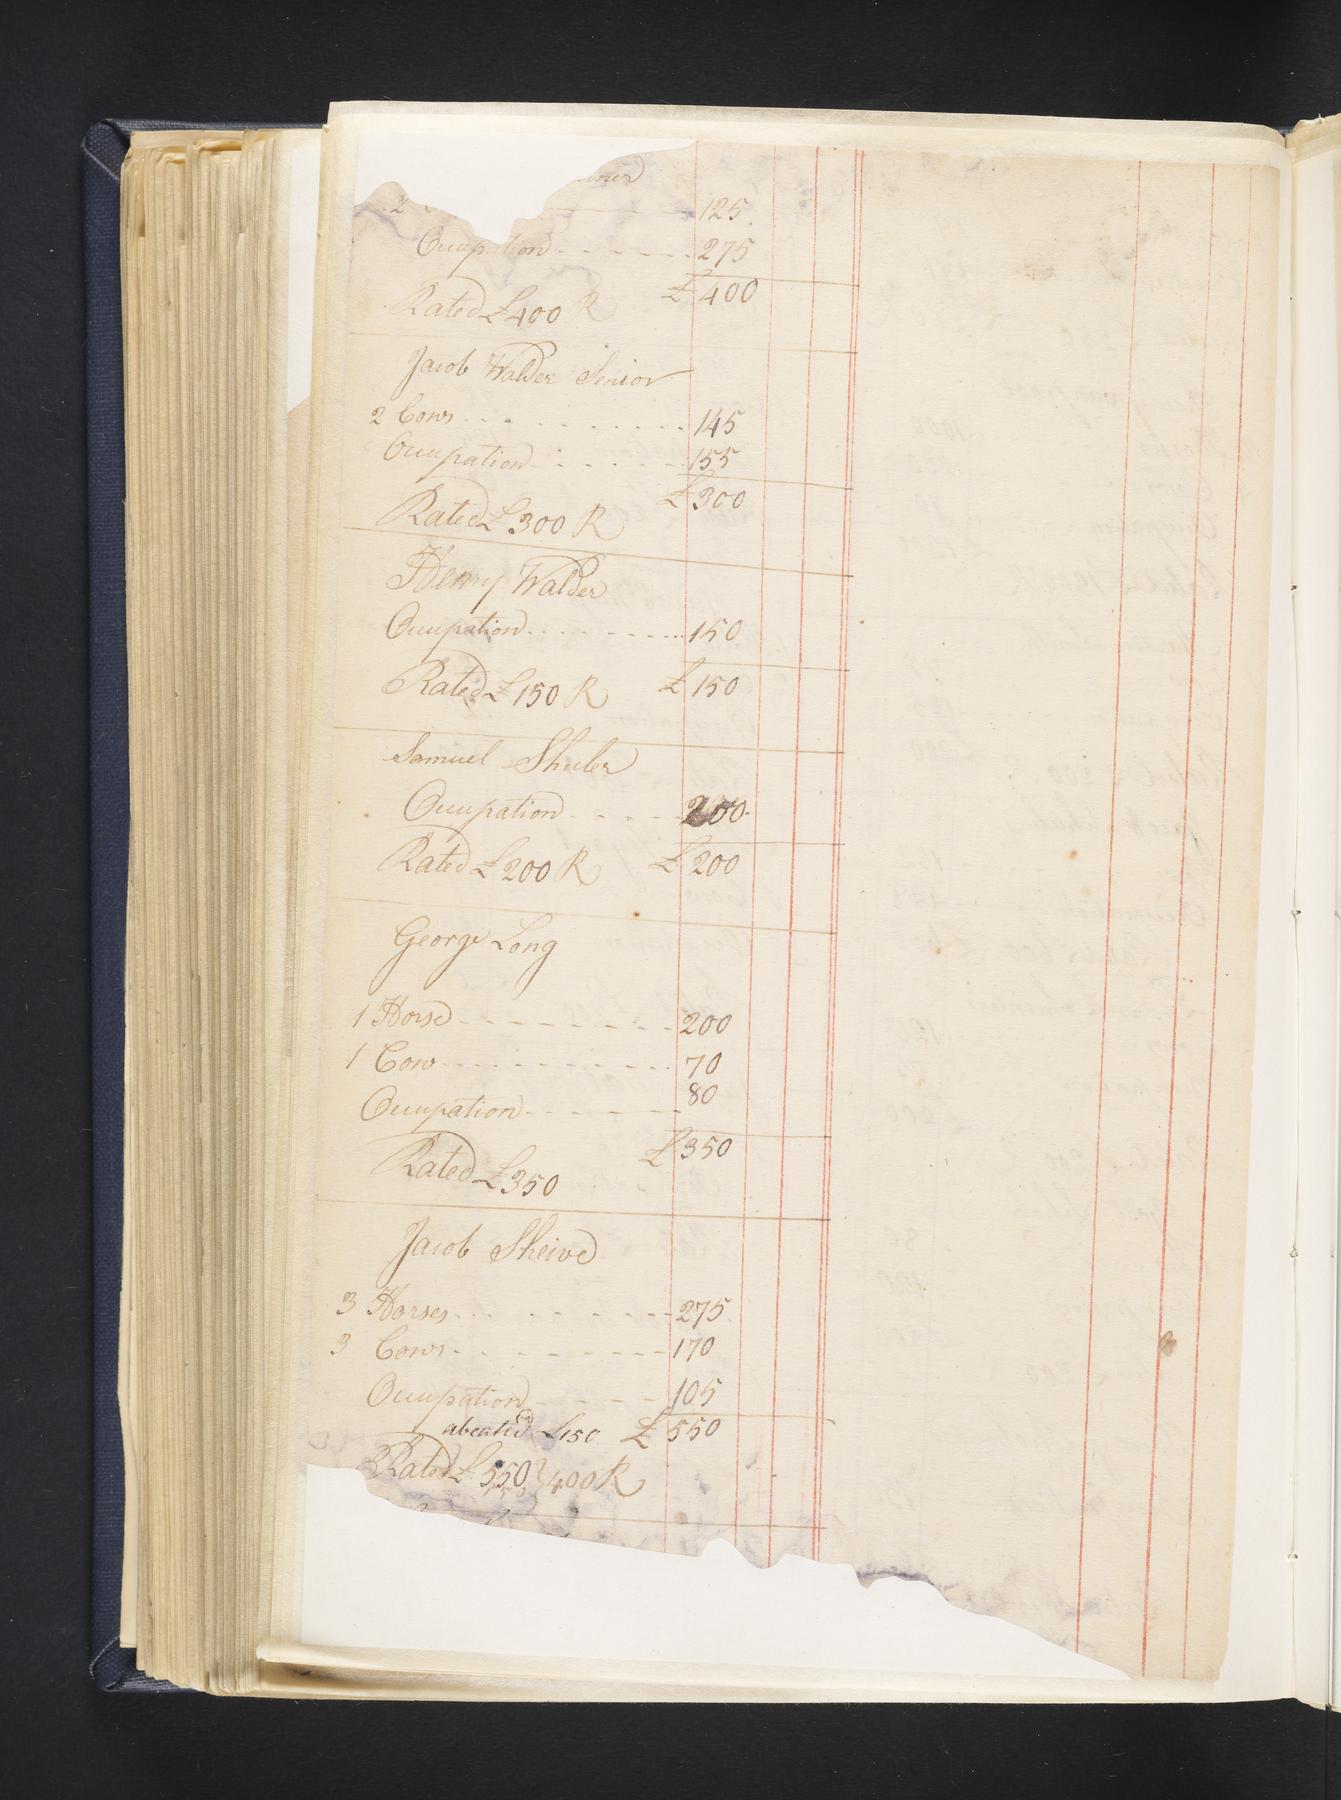 2 125
Occupation 275
£ 400
Rated £ 400 R
Jacob Walder Senior
2 Cows 145
Occupation 155
£ 300
Rated £ 300 R
Henry Walder
Occupation 150
Rated £ 150 R £ 150
Samuel Shuler
Occupation 200
Rated £ 200 R £ 200
George Long
1 Horse 200
1 Cow 70
Occupation 80
£ 350
Rated £ 350
Jacob Sheive
3 Horses 275
3 Cows 170
Occupation 105
abeated £ 150 £ 550
Rated £ 550 400 R